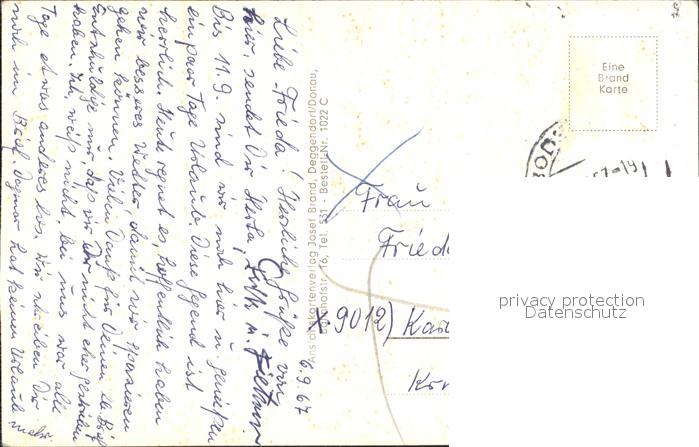 6.9.67
Liebe Frieda! Herzliche Grüße von
hier, sendet Dir Herta,
Bis 11.9. sind wir noch hier u. genießen
ein paar Tage Urlaub. Diese Gegend ist
herrlich. Heute regnet es, hoffentlich haben
wir besseres Wetter, damit wir spazieren
gehen können. Vielen Dank für Deinen lb. Brief
Entschuldige mir, daß wir Dir nicht eher geschrieben
haben. Ich weiß nicht, bei uns war alle
Tage etwas anderes los. Wir schreiben Dir
noch im Brief. Dagmar hat keinen Urlaub
mehr.
Ansichtskartenverlag Josef Brand, Deggendorf/Donau,
Bahnhofstr. 76, Tel. 531 - Bestell-Nr. 1022 C
Eine
Brand
Karte
BOD
Frau
Fried
X 9012) Karl
privacy protection
Datenschutz